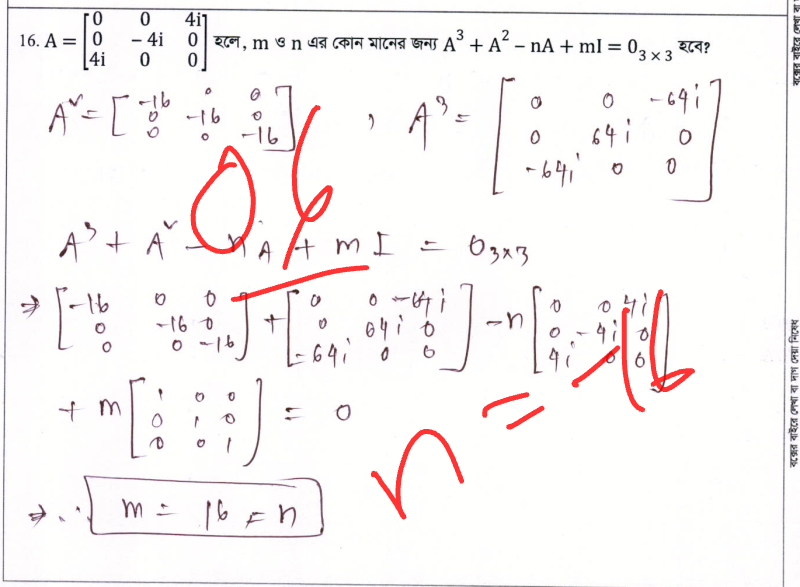 16. A = [0 0 4i; 0 - 4i 0; 4i 0 0] হলে, m ও n এর কোন মানের জন্য A³ + A² − nA + mI = 0₃ₓ₃ হবে?
A² = [-16 0 0; 0 -16 0; 0 0 -16] , A³ = [0 0 -64i; 0 64i 0; -64i 0 0]
06
A³ + A² − nA + mI = 0₃ₓ₃
⇒ [-16 0 0; 0 -16 0; 0 0 -16] + [0 0 -64i; 0 64i 0; -64i 0 0] − n [0 0 4i; 0 -4i 0; 4i 0 0]
+ m [1 0 0; 0 1 0; 0 0 1] = 0
n = -16
⇒ ∴ m = 16 = n
বক্সের বাইরে লেখা বা দাগ দেয়া নিষেধ